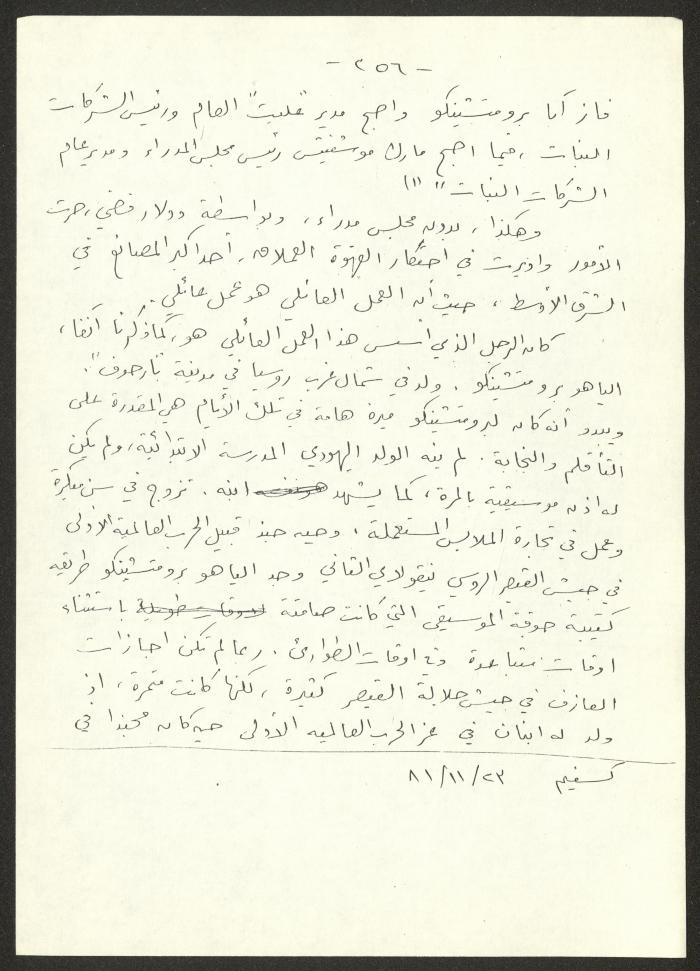 - ٢٥٦ -
فاز آبا برومتشينكو واصبح مدير "عليت" العام ورئيس الشركات
البنات ، فيما اصبح مارك موشفيتش رئيس مجلس المدراء ومدير عام
الشركات البنات" (١)
وهكذا ، بدون مجلس مدراء ، وبواسطة دولار فضي ، جرت
الأمور واديرت في احتكار القهوة العملاقة ، أحد اكبر المصانع في
الشرق الأوسط ، حيث أن العمل العائلي هو عمل عائلي .
كان الرجل الذي أسس هذا العمل العائلي هو ، كما ذكرنا آنفا ،
الياهو برومتشينكو . ولد في شمال غرب روسيا في مدينة
ويبدو أنه كان لبرومتشينكو ميزة هامة في تلك الأيام هي المقدرة على
التأقلم والنجابة . لم ينه الولد اليهودي المدرسة الابتدائية ، ولم يكن
له اذن موسيقية بالمرة ، كما يشهد ابنه . تزوج في سن مبكرة
وعمل في تجارة الملابس المستعملة ، وحين جند قبيل الحرب العالمية الأولى
في جيش القيصر الروسي نيقولاي الثاني وجد الياهو برومتشينكو طريقه
كتيبة جوقة الموسيقى التي كانت صامتة باستثناء
اوقات متباعدة وفي اوقات الطوارئ . ربما لم تكن اجازات
العازف في جيش جلالة القيصر كثيرة ، لكنها كانت مثمرة ، اذ
ولد له ابنان في عز الحرب العالمية الأولى حين كان مجندا في
٨١/١١/٢٣